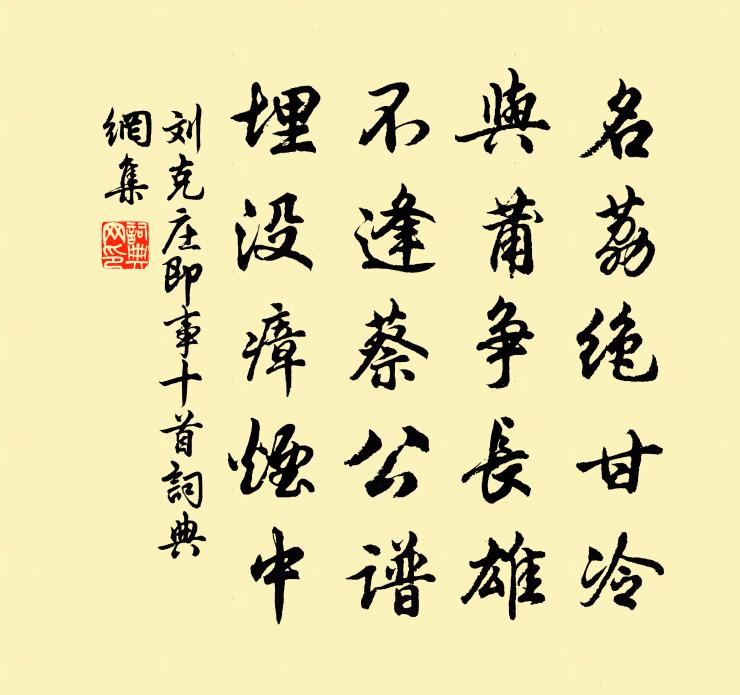 名荔绝甘冷
與莆争長雄
不逢蔡公譜
埋没瘴煙中
刘克庄即事十首詞典
網集
詞典
网印